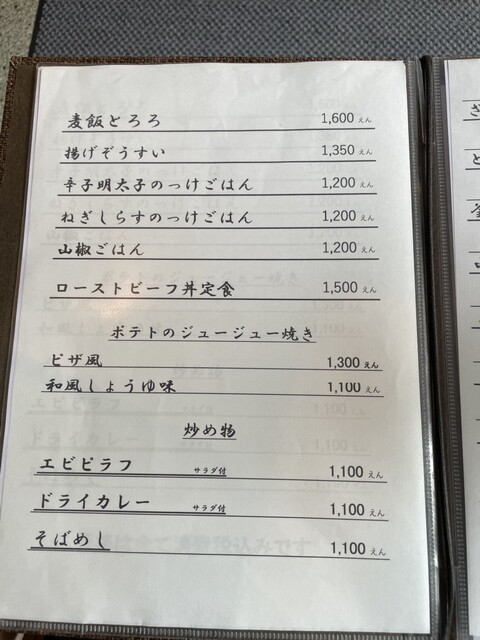 麦飯とろろ 1,600えん
揚げぞうすい 1,350えん
辛子明太子のっけごはん 1,200えん
ねぎしらすのっけごはん 1,200えん
山椒ごはん 1,200えん
ローストビーフ丼定食 1,500えん
ポテトのジュージュー焼き
ピザ風 1,300えん
和風しょうゆ味 1,100えん
炒め物
エビピラフ サラダ付 1,100えん
ドライカレー サラダ付 1,100えん
そばめし 1,100えん